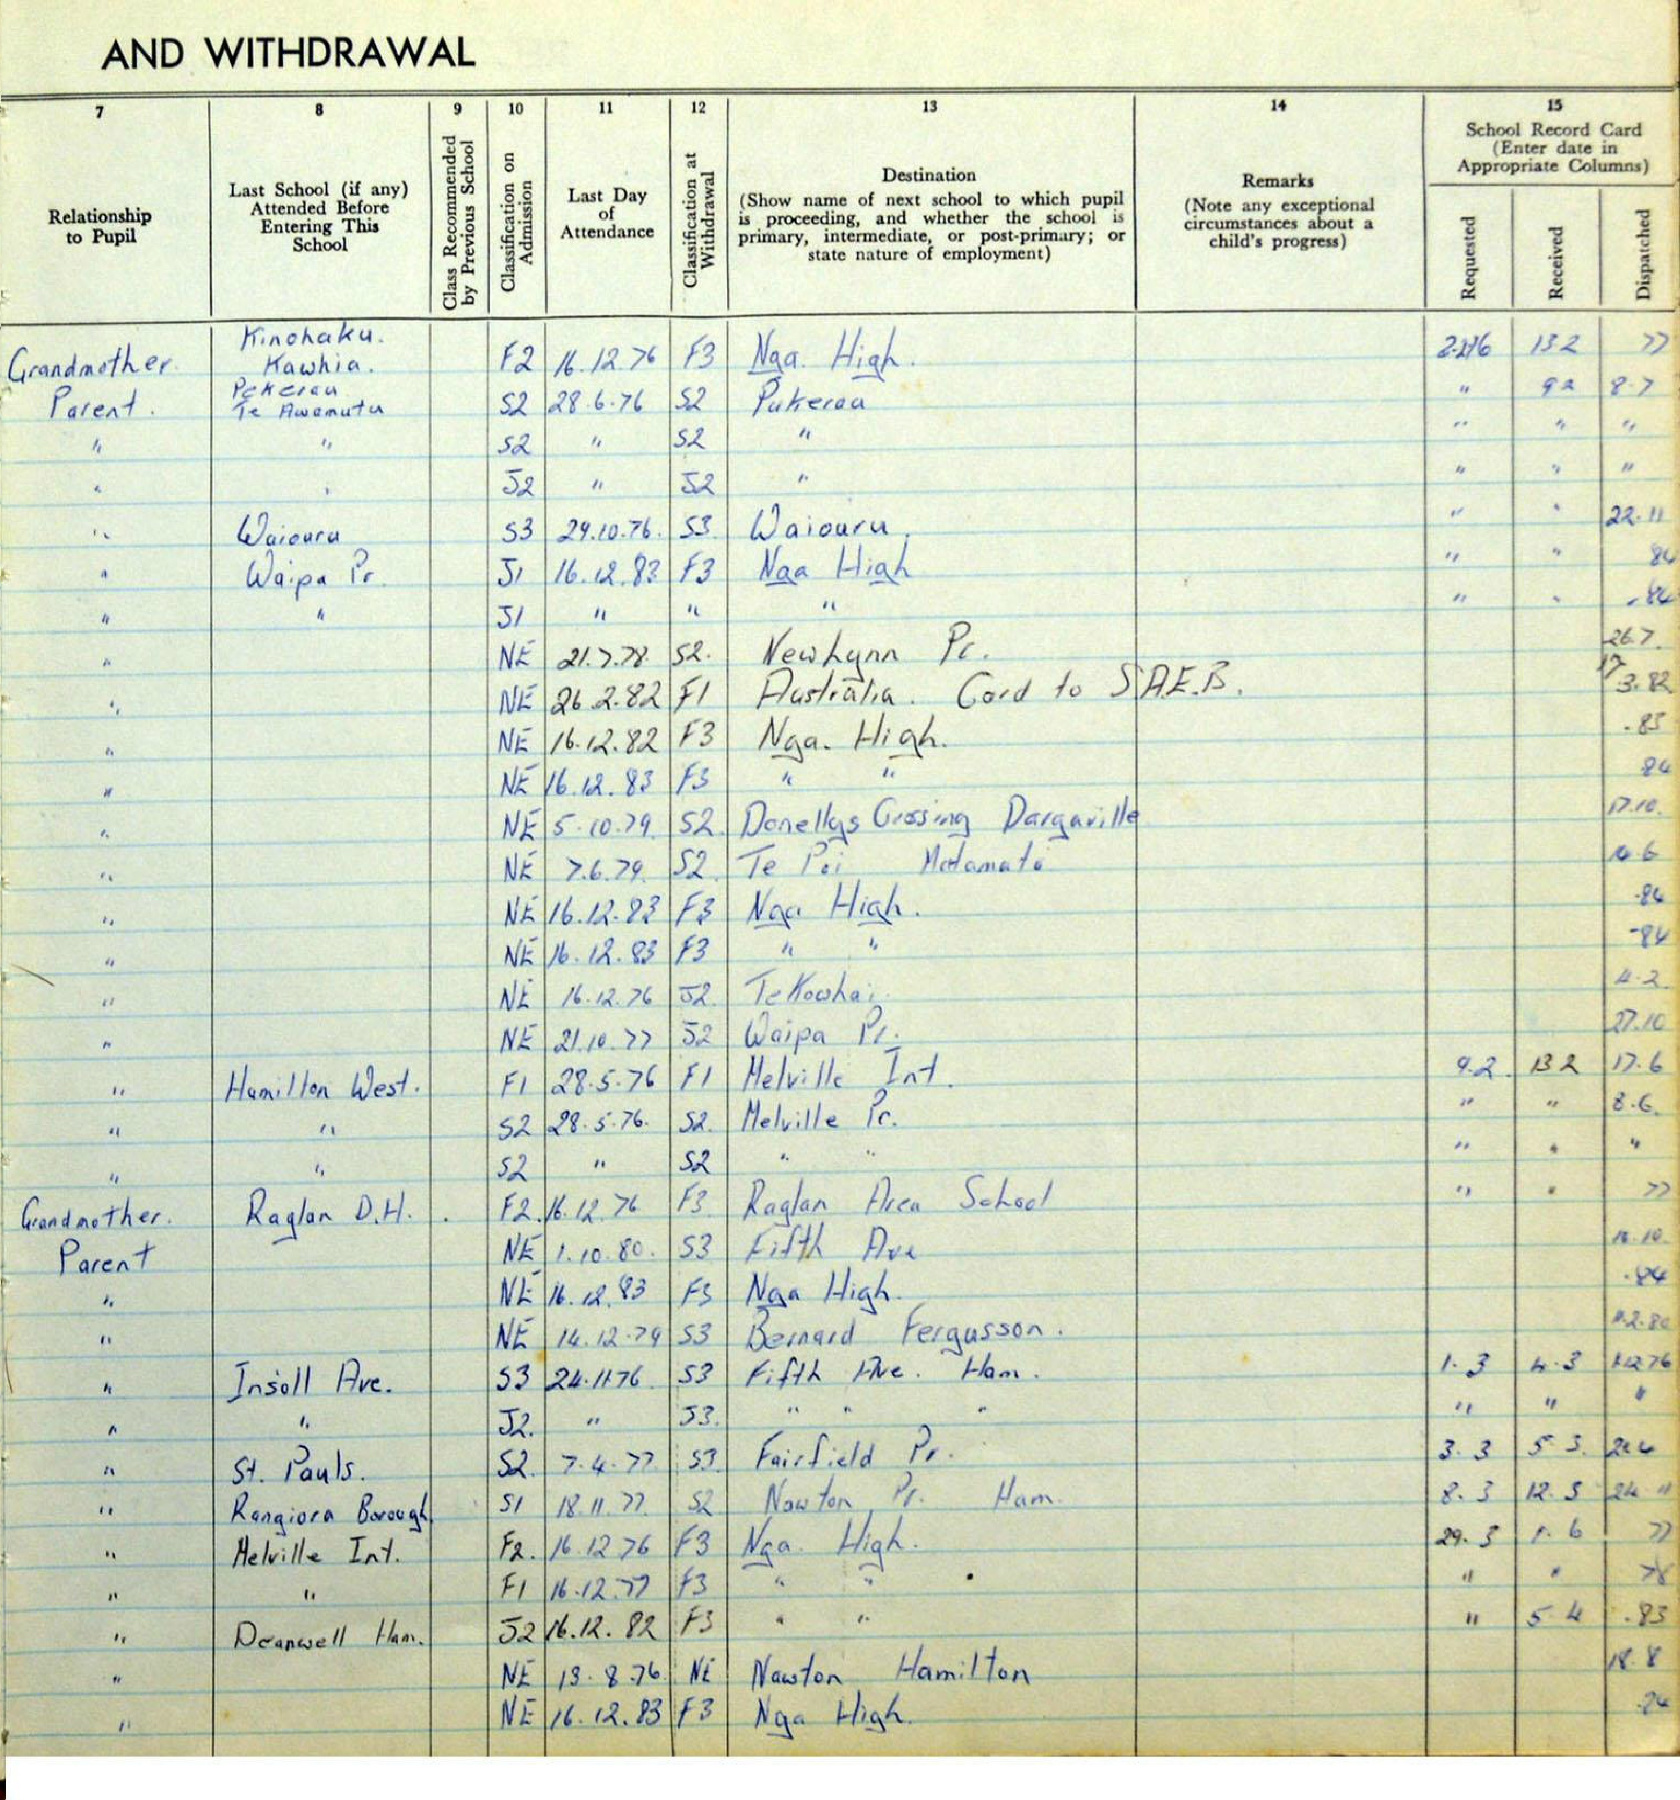 AND WITHDRAWAL
7 8 9 10 11 12 13 14 15
Relationship to Pupil
Last School (if any) Attended Before Entering This School
Class Recommended by Previous School
Classification on Admission
Last Day of Attendance
Classification at Withdrawal
Destination
(Show name of next school to which pupil is proceeding, and whether the school is primary, intermediate, or post-primary; or state nature of employment)
Remarks
(Note any exceptional circumstances about a child's progress)
School Record Card
(Enter date in Appropriate Columns)
Requested Received Dispatched
Grandmother Kinohaku. Kawhia. F2 16.12.76 F3 Nga. High. 13 2 77
Parent. Te Awamutu S2 28.6.76 S2 " 9 2 8.7
" " S2 " S2 " " " "
" " J2 " J2 " " " "
" Waiouru S3 29.10.76. S3. Waiouru. " " 22.11
" Waipa Pr. J1 16.12.83 F3 Nga High " " 84
" " J1 " " " " " .84
" NE 21.7.78. S2. New Lynn Pr. 26.7.
" NE 26.2.82 F1 Australia. Card to S.A.E.B. 17 3.82
" NE 16.12.82 F3 Nga. High. .83
" NE 16.12.83 F3 " " 84
" NE 5.10.79. S2. Donellys Crossing Dargaville 17.10.
" NE 7.6.79. S2. Te Poi Matamata
" NE 16.12.83 F3 Nga High. .84
" NE 16.12.83 F3 " " 84
" NE 16.12.76 J2. Te Kowhai. 4.2
" NE 21.10.77 J2 Waipa Pr. 27.10
" Hamilton West. F1 28.5.76 F1 Melville Int. 9.2. 13 2 17.6
" " S2 28.5.76. S2. Melville Pr. " " 8.6.
" " S2 " S2 " " " " "
Grandmother. Raglan D.H. F2. 16.12.76 F3 Raglan Area School " " 77
Parent NE 1.10.80. S3 Fifth Ave
" NE 16.12.83 F3 Nga High. .84
" NE 14.12.79 S3 Bernard Fergusson.
" Insoll Ave. S3 24.11.76. S3 Fifth Ave. Ham. 1.3 4.3 1.12.76
" " J2. " J3. " " " " " "
" St. Pauls. S2. 7.4.77. S3 Fairfield Pr. 3.3 5 3.
" Rangiora Borough S1 18.11.77. S2 Nawton Pr. Ham. 8.3 12.3 24 11
" Melville Int. F2. 16.12.76 F3 Nga. High. 29.3 1.6 77
" " F1 16.12.77 F3 " " " " 78
" Deanwell Ham. J2 16.12.82 F3 " " " 5 4 .83
" NE 13.8.76. NE Nawton Hamilton 18.8
" NE 16.12.83 F3 Nga High.